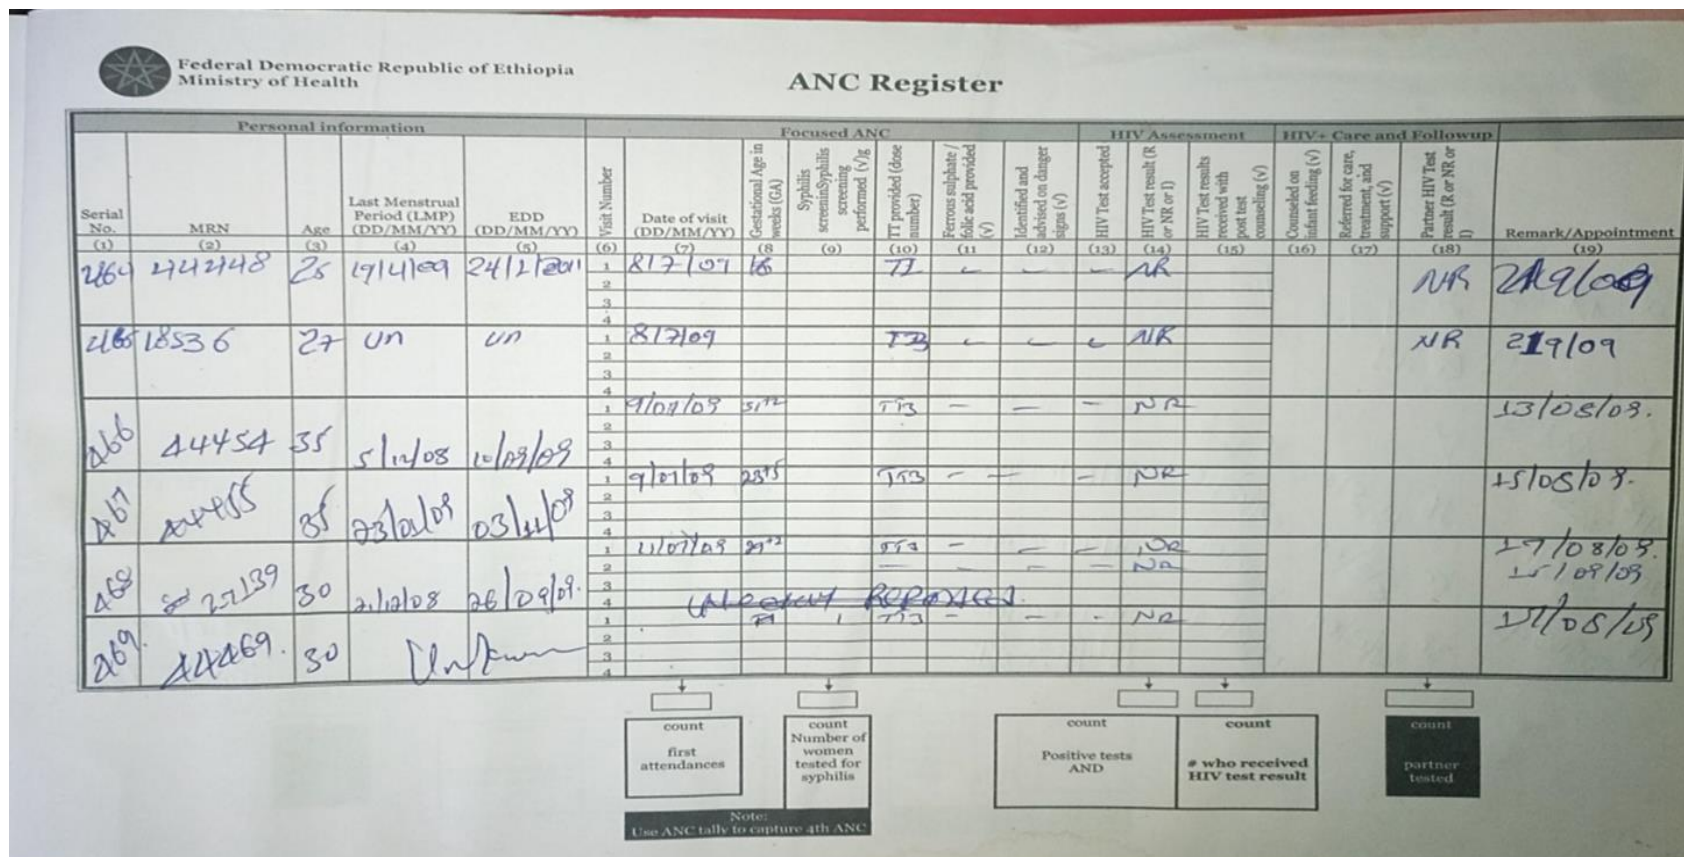 Federal Democratic Republic of Ethiopia
Ministry of Health
ANC Register
Personal information Focused ANC HIV Assessment HIV+ Care and Followup
Serial No. MRN Age Last Menstrual Period (LMP) (DD/MM/YY) EDD (DD/MM/YY) Visit Number Date of visit (DD/MM/YY) Gestational Age in weeks (GA) Syphilis screeninSyphilis screening performed (√)g TT provided (dose number) Ferrous sulphate / folic acid provided (√) Identified and advised on danger signs (√) HIV Test accepted HIV Test result (R or NR or I) HIV Test results received with post test counseling (√) Counseled on infant feeding (√) Referred for care, treatment, and support (√) Partner HIV Test result (R or NR or I) Remark/Appointment
(1) (2) (3) (4) (5) (6) (7) (8 (9) (10) (11 (12) (13) (14) (15) (16) (17) (18) (19)
464 44448 25 19/4/09 1 8/7/09 16 NR NR
2
3
4
18536 27 un un 1 8/7/09 NR NR 219/09
2
3
4
466 44454 35 5/12/08 1 9/07/09 TT3 — — — NR 13/08/09.
2
3
4
467 44455 35 03/11/09 1 9/07/09 23+5 TT3 — — — NR 15/08/09.
2
3
4
468 30 26/09/09. 1 11/07/09 29+2 TT3 — — — NR 17/08/09.
2 — — — NR 15/09/09
3
4
469. 44469. 30 Unknown 1 TT3 - — - NR
2
3
4
count first attendances
count Number of women tested for syphilis
count Positive tests AND
count # who received HIV test result
count partner tested
Note:
Use ANC tally to capture 4th ANC